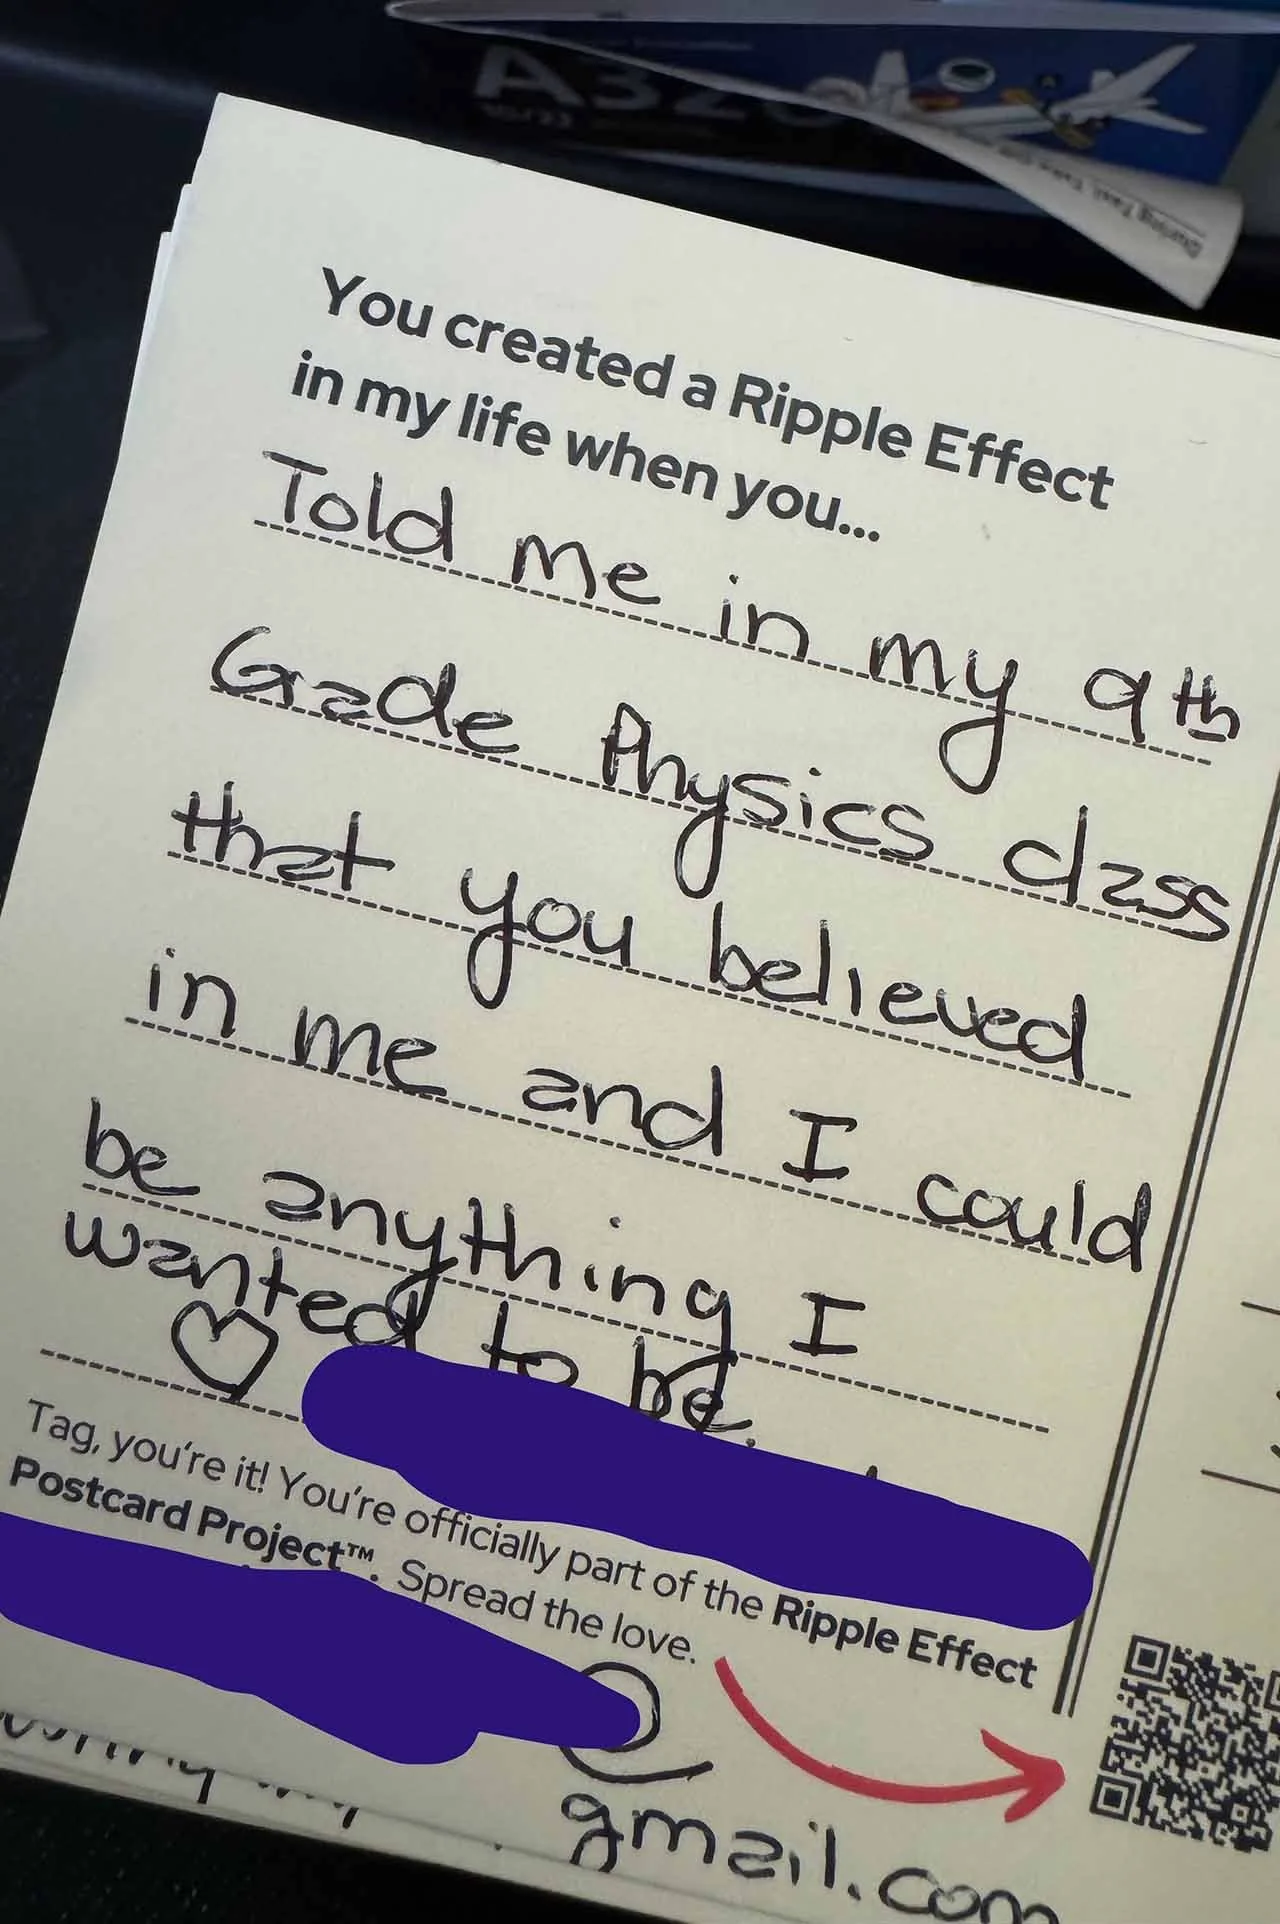 A320
10/23
You created a Ripple Effect
in my life when you...
Told me in my 9th
Grade Physics class
that you believed
in me and I could
be anything I
wanted to be.
♡
Tag, you're it! You're officially part of the Ripple Effect
Postcard Project™. Spread the love.
@
gmail.com